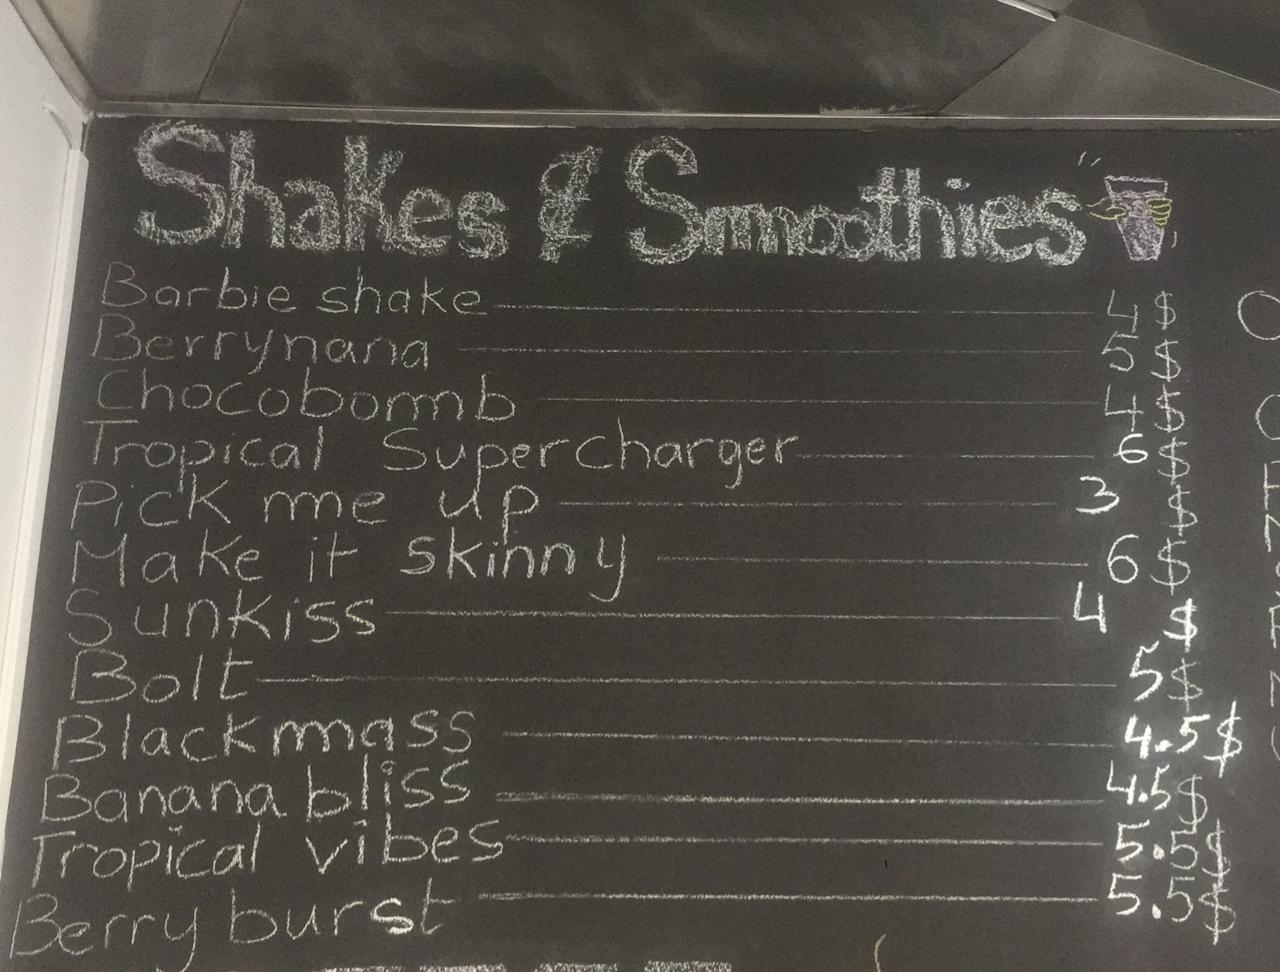 Shakes & Smoothies
Barbie shake 4$
Berrynana 5$
Chocobomb 4$
Tropical Supercharger 6$
Pick me up 3 $
Make it skinny 6$
Sunkiss 4 $
Bolt 5$
Blackmass 4.5$
Banana bliss 4.5$
Tropical vibes 5.5$
Berry burst 5.5$